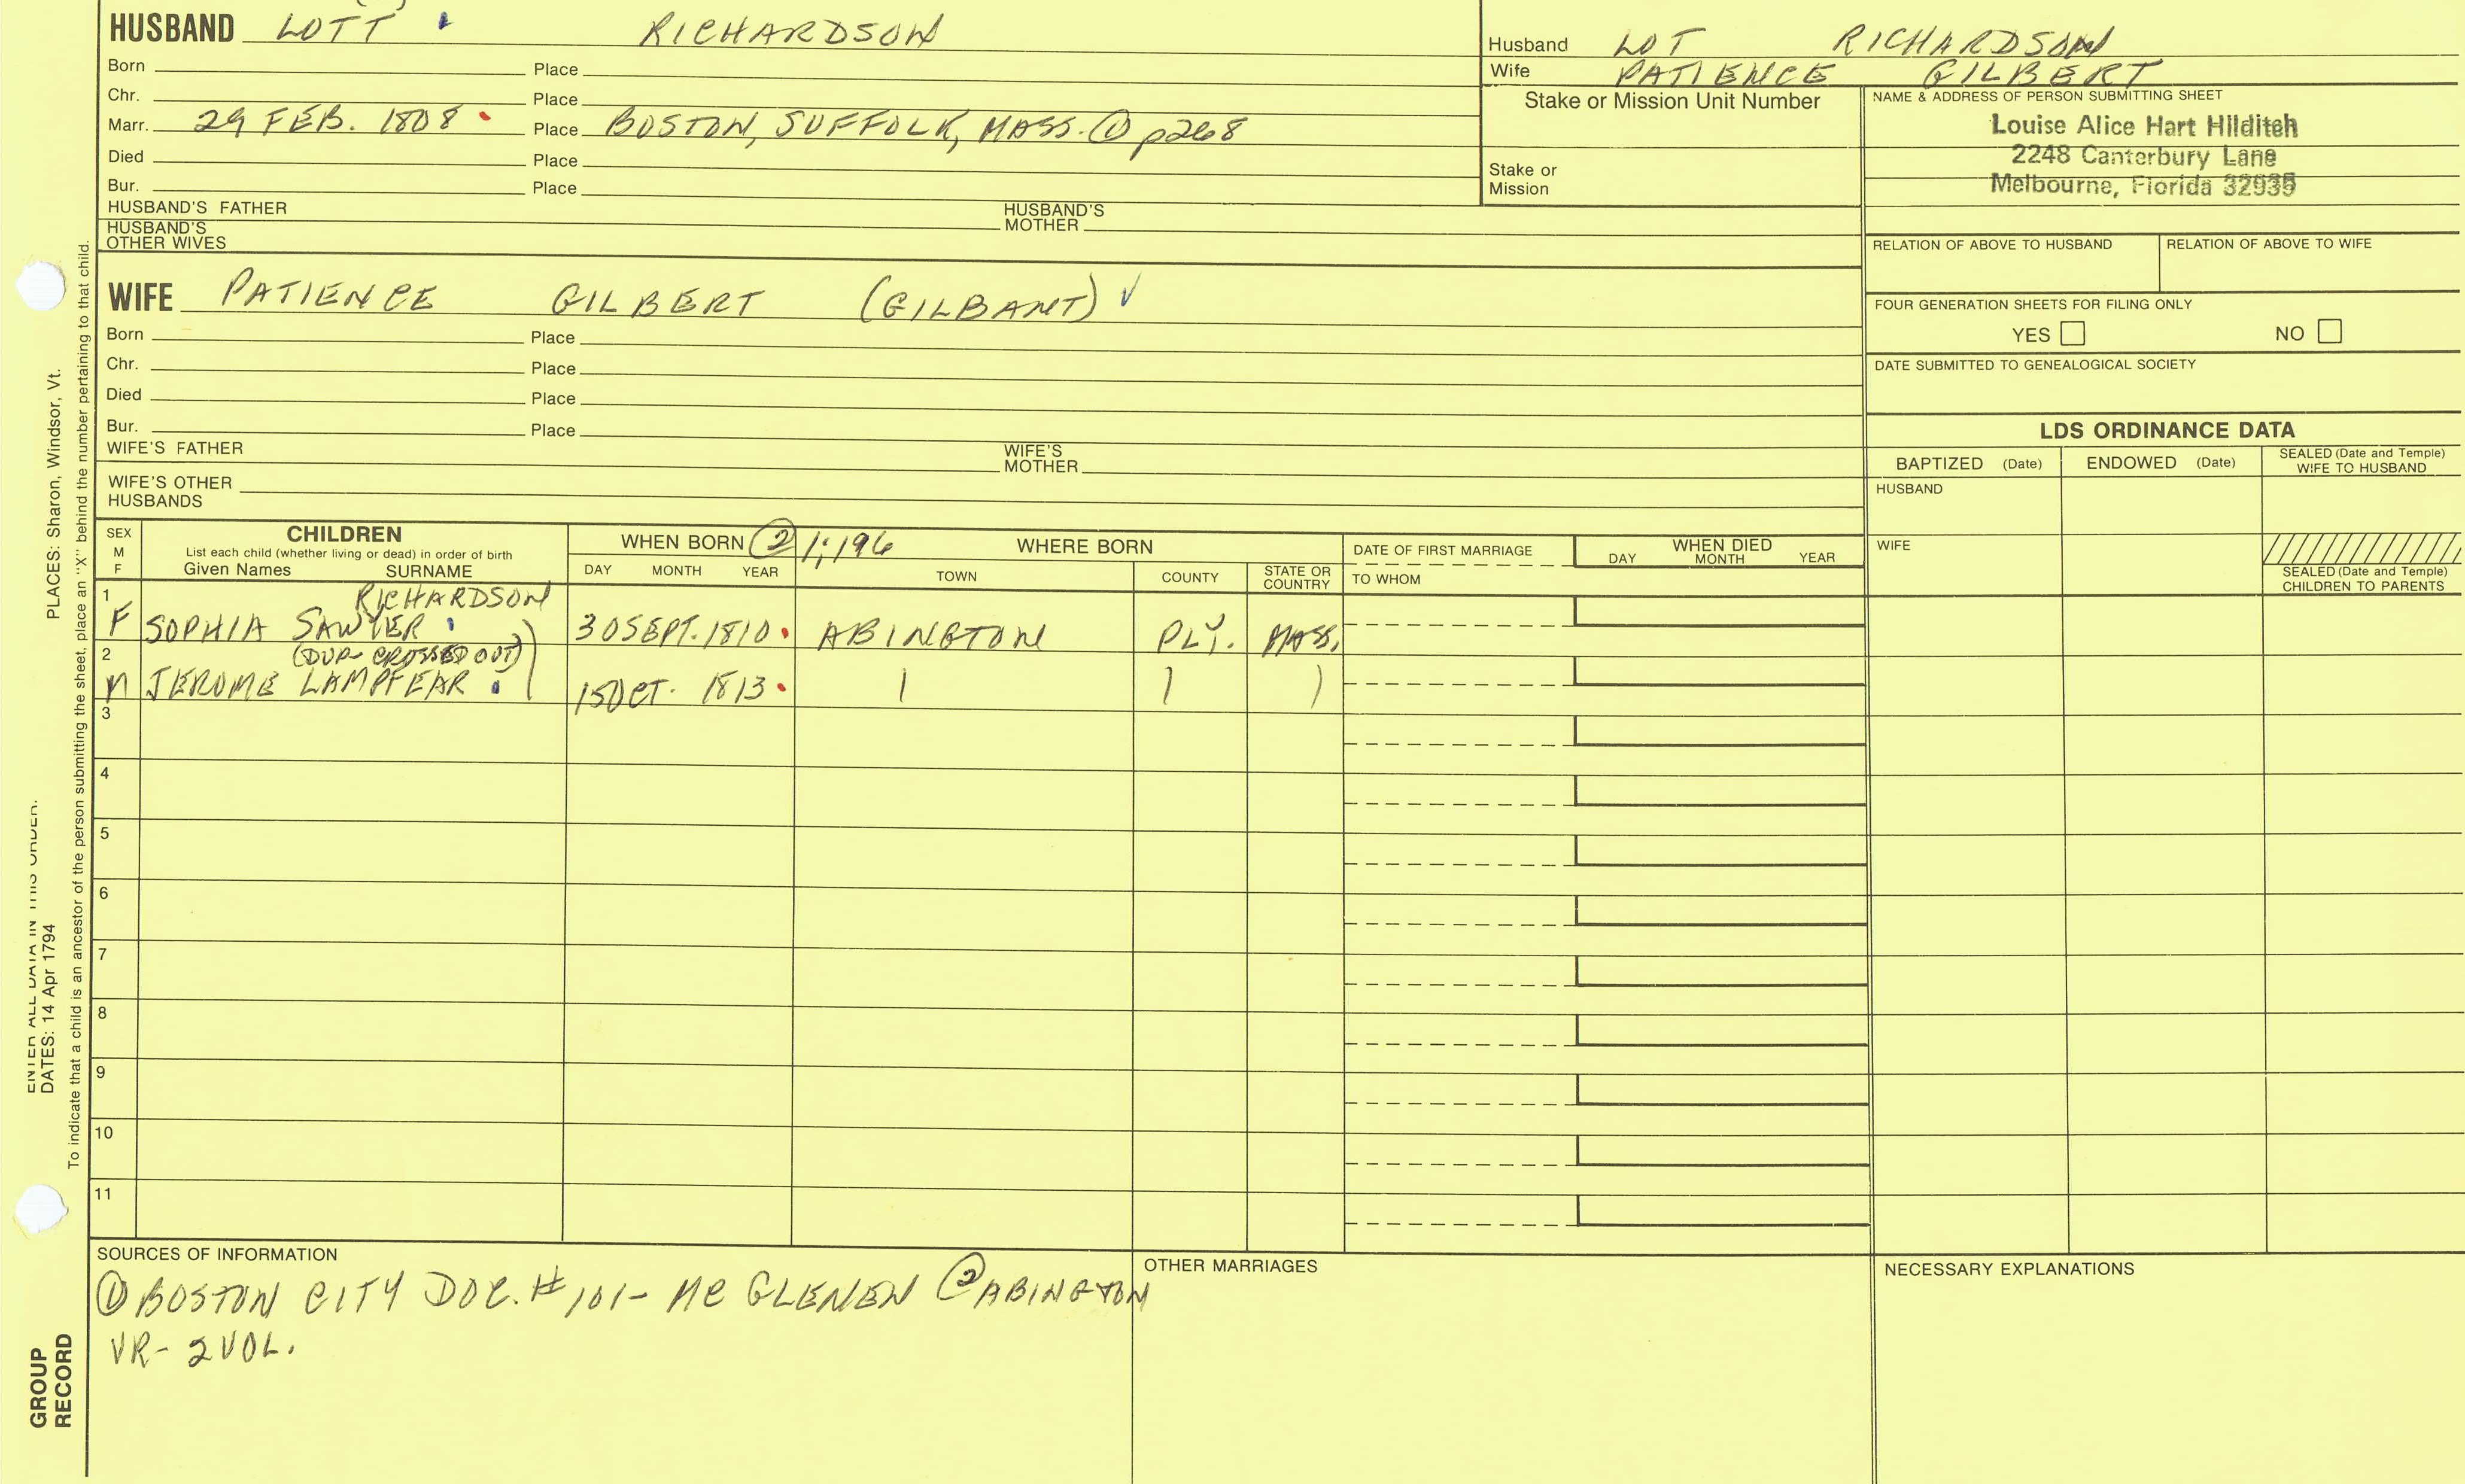 HUSBAND LOTT RICHARDSON
Born Place
Chr. Place
Marr. 29 FEB. 1808 Place BOSTON, SUFFOLK, MASS. ① p268
Died Place
Bur. Place
HUSBAND'S FATHER HUSBAND'S MOTHER
HUSBAND'S OTHER WIVES
Husband LOT RICHARDSON
Wife PATIENCE GILBERT
Stake or Mission Unit Number
Stake or Mission
NAME & ADDRESS OF PERSON SUBMITTING SHEET
Louise Alice Hart Hilditch
2248 Canterbury Lane
Melbourne, Florida 32935
RELATION OF ABOVE TO HUSBAND RELATION OF ABOVE TO WIFE
FOUR GENERATION SHEETS FOR FILING ONLY
YES NO
DATE SUBMITTED TO GENEALOGICAL SOCIETY
WIFE PATIENCE GILBERT (GILBANT) ✓
Born Place
Chr. Place
Died Place
Bur. Place
WIFE'S FATHER WIFE'S MOTHER
WIFE'S OTHER HUSBANDS
LDS ORDINANCE DATA
BAPTIZED (Date) ENDOWED (Date) SEALED (Date and Temple) WIFE TO HUSBAND
HUSBAND
WIFE
SEALED (Date and Temple) CHILDREN TO PARENTS
SEX M F
CHILDREN
List each child (whether living or dead) in order of birth
Given Names SURNAME
WHEN BORN ② 1;196 WHERE BORN
DAY MONTH YEAR TOWN COUNTY STATE OR COUNTRY
DATE OF FIRST MARRIAGE
TO WHOM
WHEN DIED
DAY MONTH YEAR
1 RICHARDSON
F SOPHIA SAWYER 30 SEPT. 1810 ABINGTON PLY. MASS.
2 (DUP- CROSSED OUT)
M JEROME LAMPFEAR 15 OCT. 1813
3
4
5
6
7
8
9
10
11
SOURCES OF INFORMATION
① BOSTON CITY DOC. # 101- MC GLENEN ② ABINGTON
VR- 2 VOL.
OTHER MARRIAGES
NECESSARY EXPLANATIONS
ENTER ALL DATA IN THIS ORDER.
DATES: 14 Apr 1794 PLACES: Sharon, Windsor, Vt.
To indicate that a child is an ancestor of the person submitting the sheet, place an "X" behind the number pertaining to that child.
GROUP
RECORD